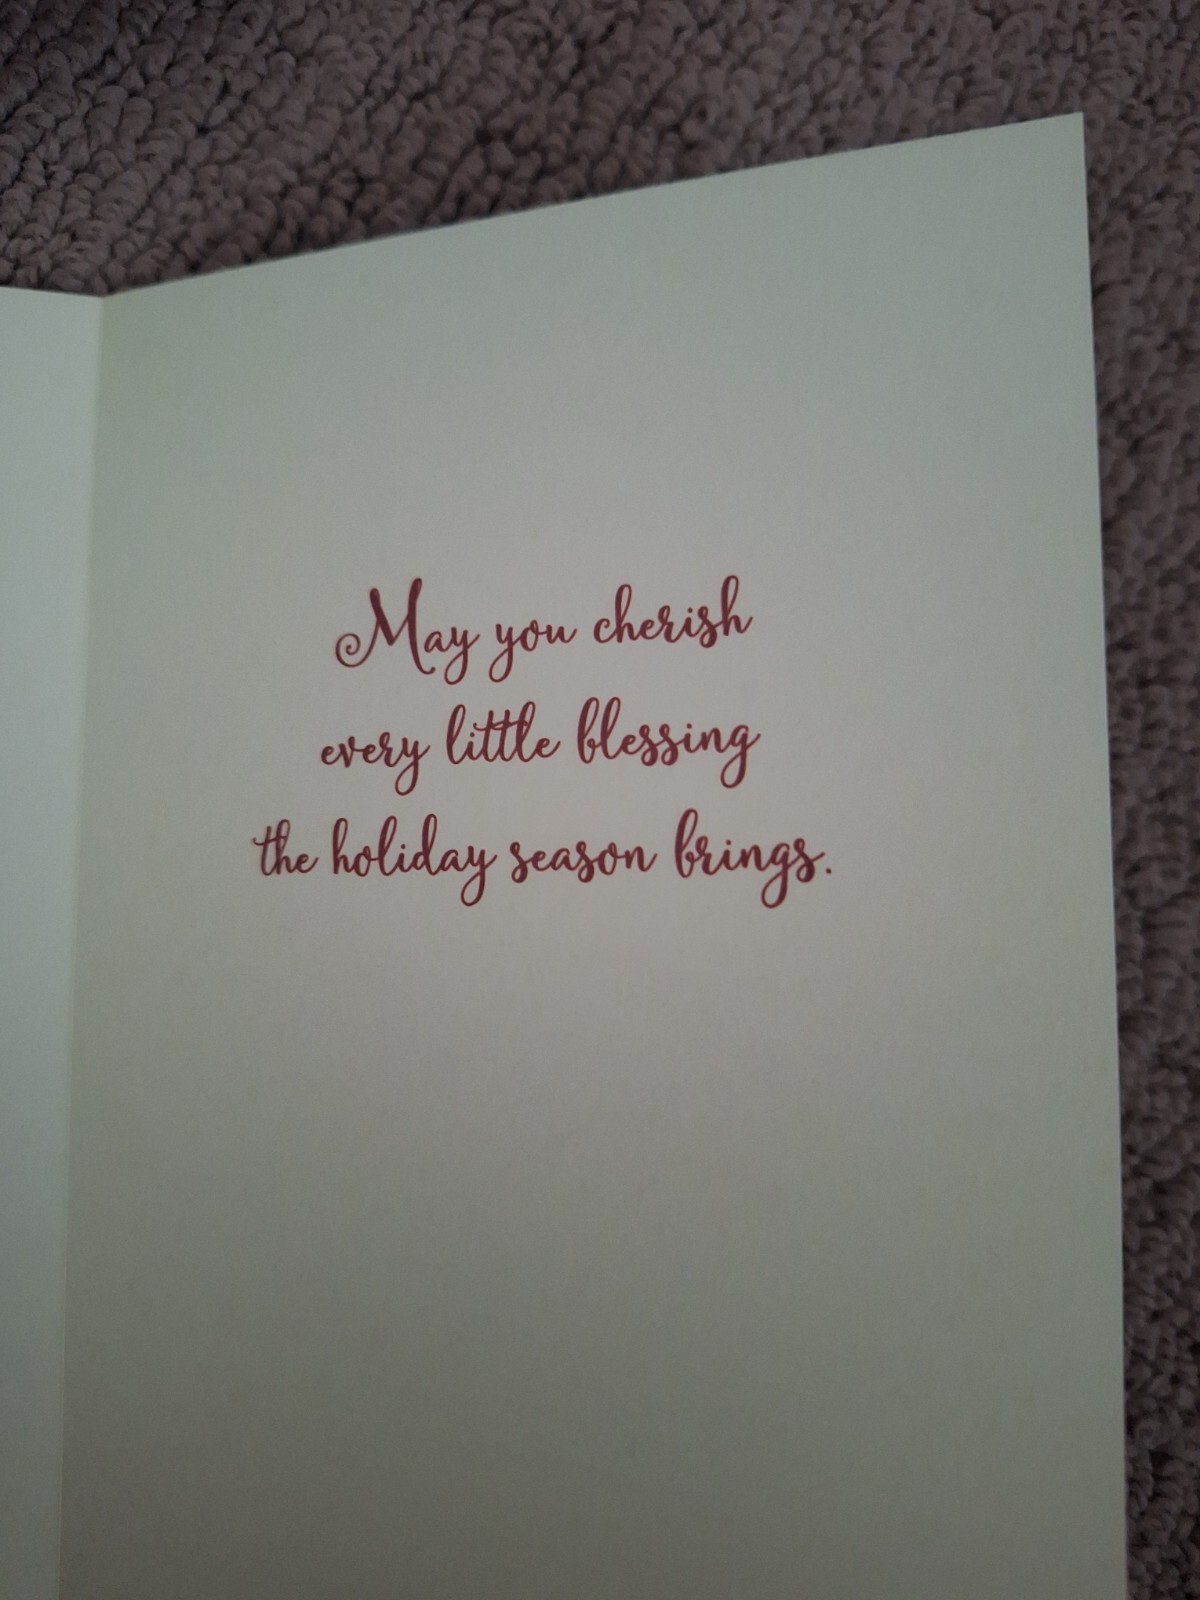 May you cherish
every little blessing
the holiday season brings.